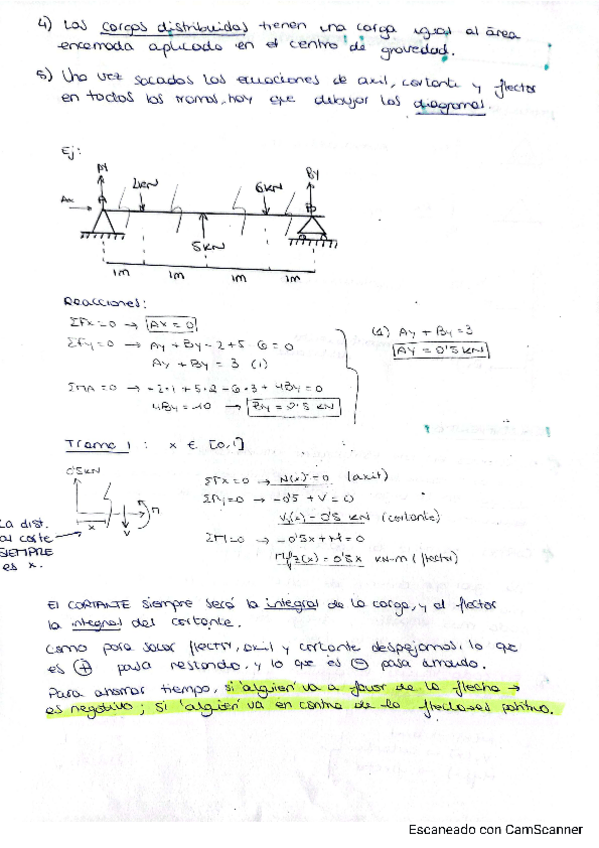 4) Las cargas distribuidas tienen una carga igual al área
encerrada aplicada en el centro de gravedad.
5) Una vez sacadas las ecuaciones de axil, cortante y flector
en todos los tramos, hay que dibujar los diagramas.
Ej:
AY
BY
2KN
6KN
Ax
A
B
5KN
1m 1m 1m 1m
Reacciones:
ΣFx=0 → Ax = 0
ΣFy=0 → Ay + By - 2 + 5 - 6 = 0
Ay + By = 3 (1)
ΣMA=0 → -2·1 + 5·2 - 6·3 + 4By = 0
4By = 10 → By = 2'5 KN
(1) Ay + By = 3
Ay = 0'5 KN
Tramo 1 : x ∈ [0,1]
0'5KN
M
V
x
La dist.
al corte
SIEMPRE
es x.
ΣFx=0 → N(x) = 0 (axil)
ΣFy=0 → -0'5 + V = 0
V(x) = 0'5 KN (cortante)
ΣM=0 → -0'5x + M = 0
Mfz(x) = 0'5x KN·m (flector)
El CORTANTE siempre será la integral de la carga, y el flector
la integral del cortante.
Como para sacar flector, axil y cortante despejamos, lo que
es ⊕ pasa restando, y lo que es ⊖ pasa sumando.
Para ahorrar tiempo, si 'alguien' va a favor de la flecha →
es negativo; si 'alguien' va en contra de la flecha → es positivo.
Escaneado con CamScanner